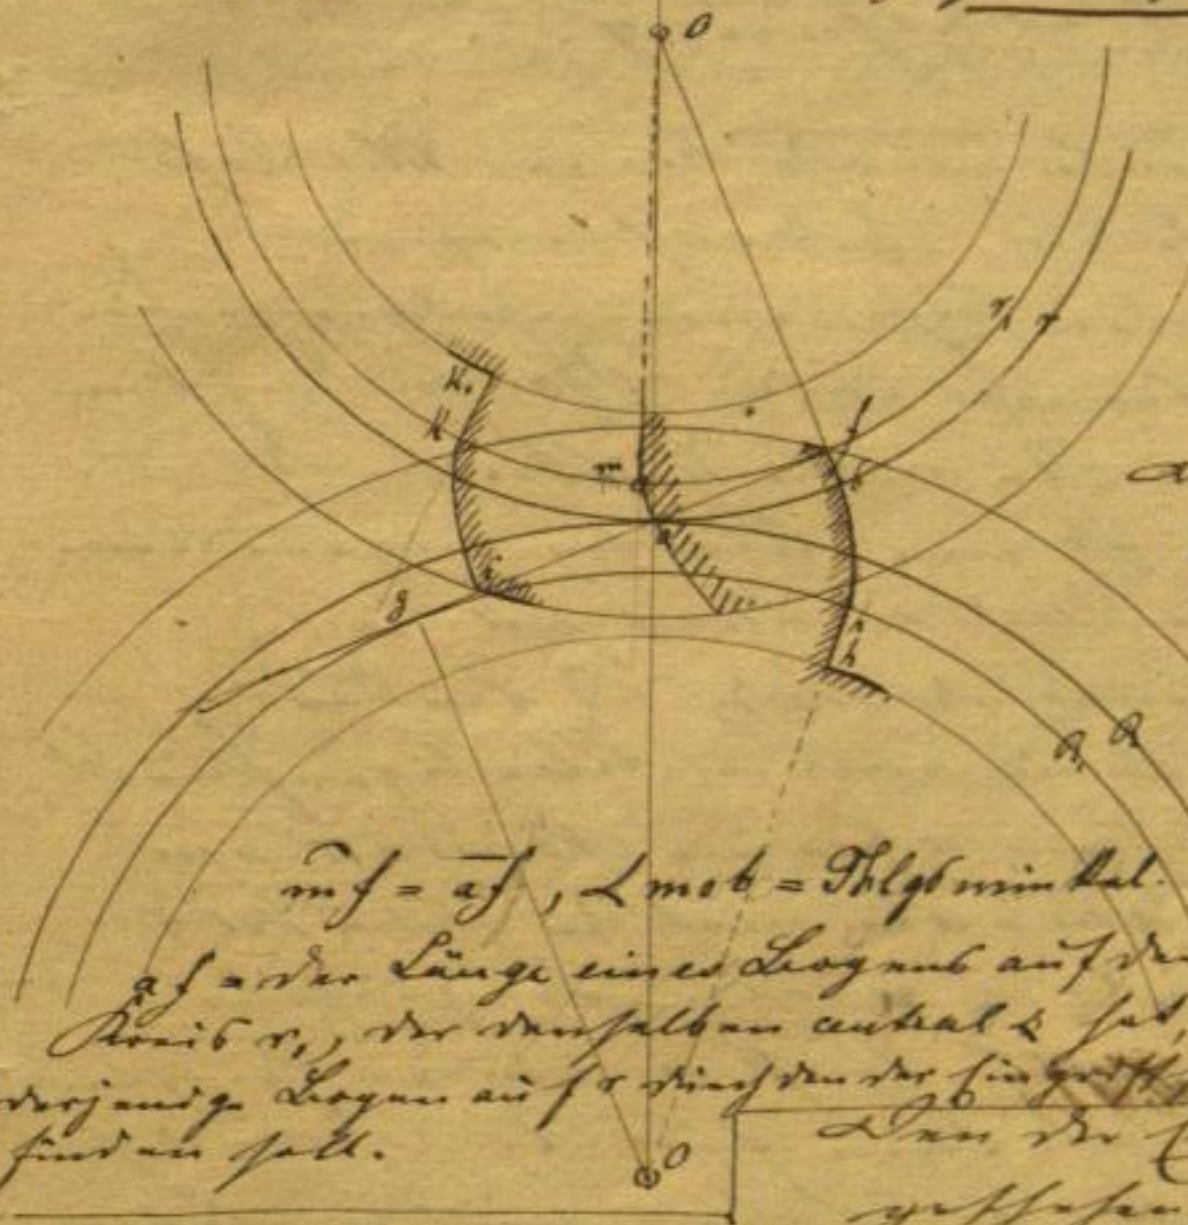 O
r₁ r
k₁
k
f
b
m
a
i
g
i
h
R₁ R
m͡f = a͞f , ∠ mob = Thlgswinkel.
af = der Länge eines Bogens auf dem
Kreis r₁, der denselben central ∠ hat,
derjenige Bogen auf r durch den der Eingriff
finden soll.
O
Den der
geschehen